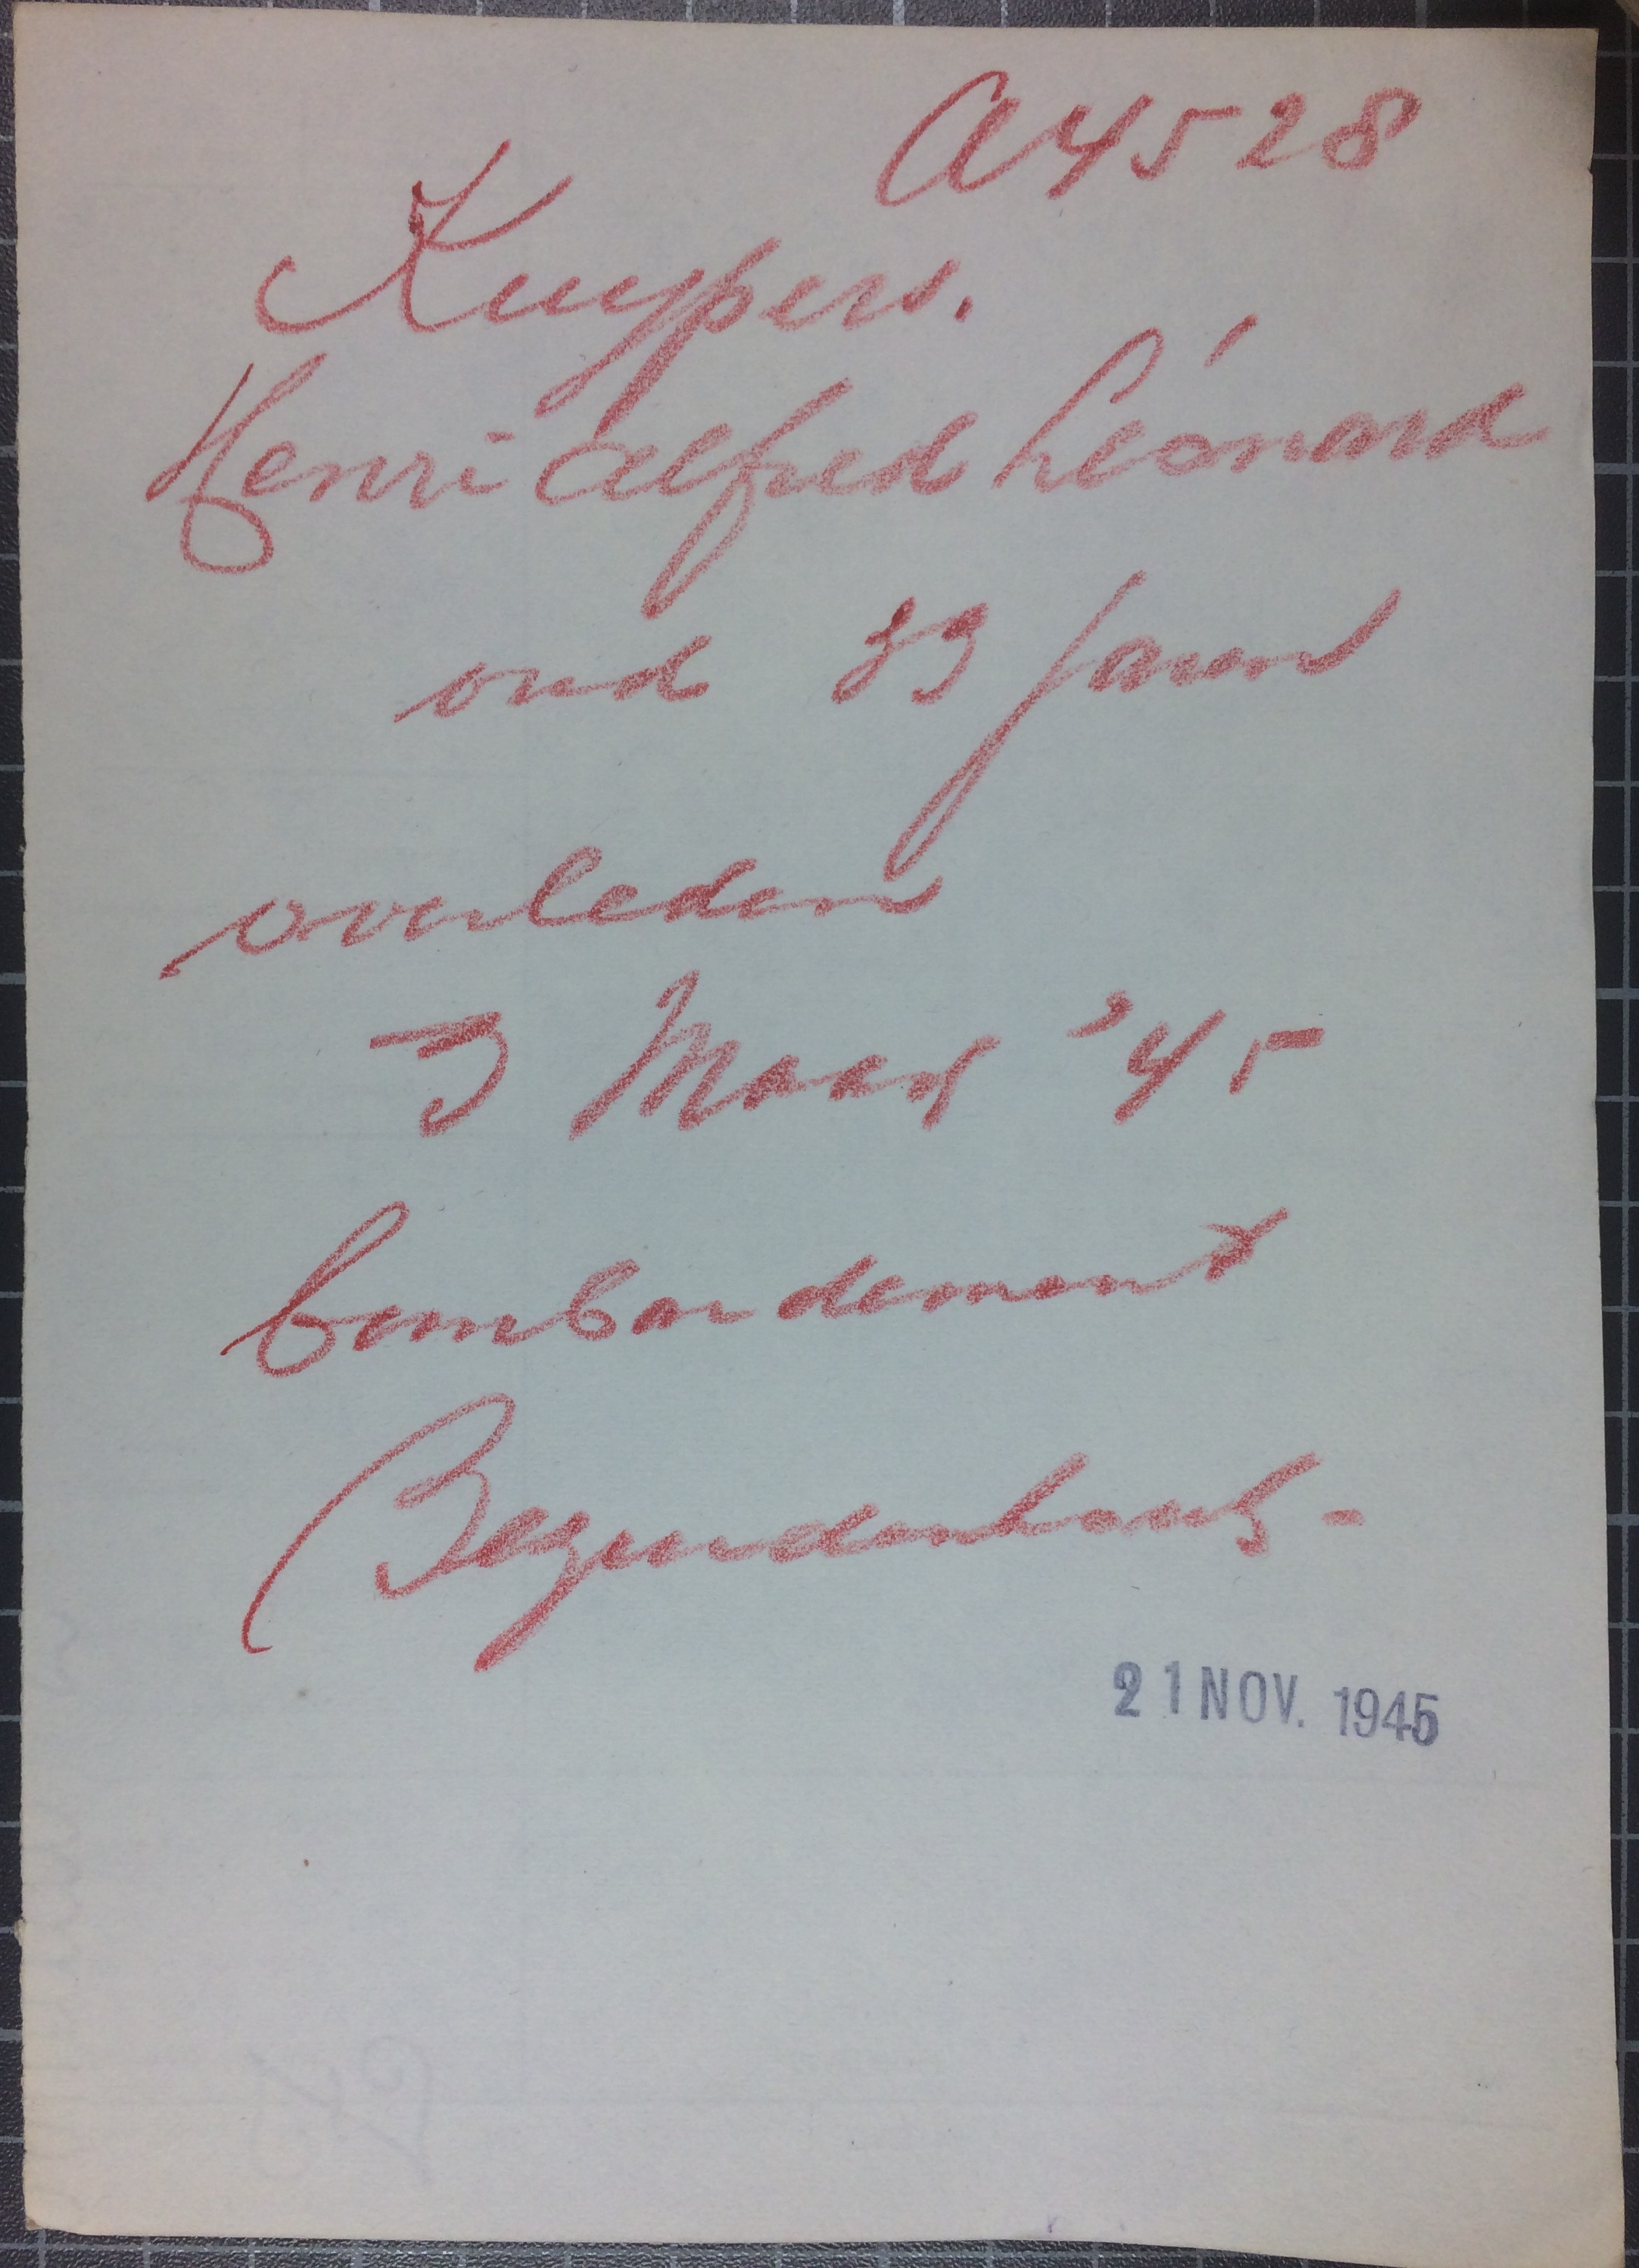 A4528
Kuypers.
Henri Alfred Léonard
oud 33 jaren
overleden
3 Maart '45
bombardement
Bezuidenhout -
21 NOV. 1945